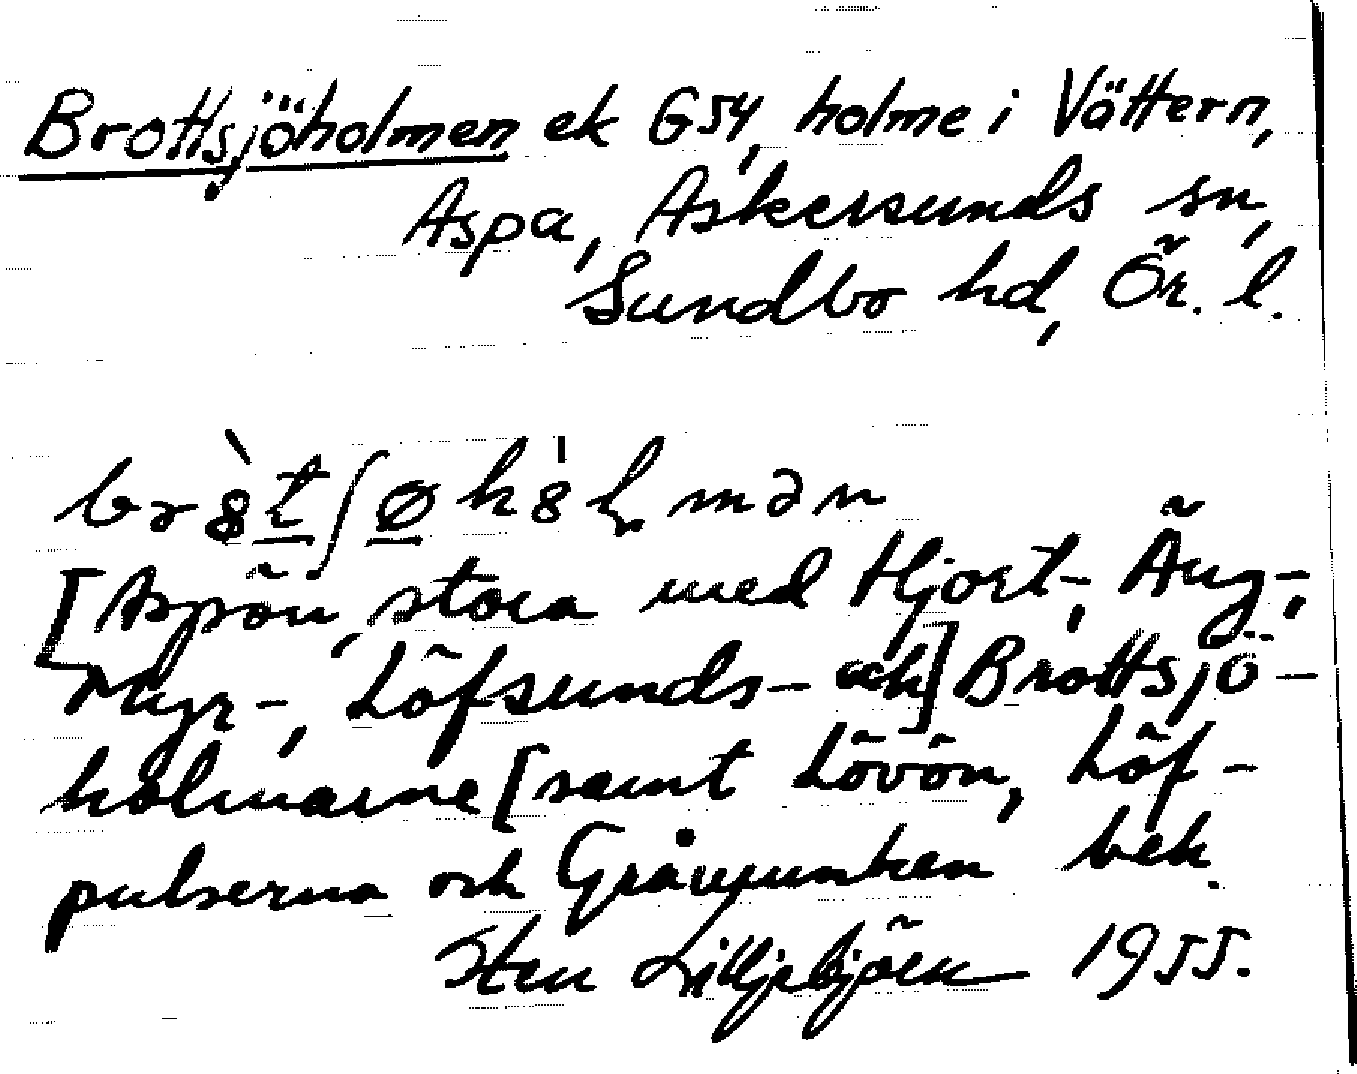 Brottsjöholmen ek G54, holme i Vättern,
Aspa, Askersunds sn,
Sundbo hd, Ör. l.
[Aspön, stora med Hjort-, Äng-,
Myr-, Löfsunds- och] Brottsjö-
holmarne [samt Lövön, Löf-
pulserna och Gråmunken bek.
Sten Lilljebjörn 1955.